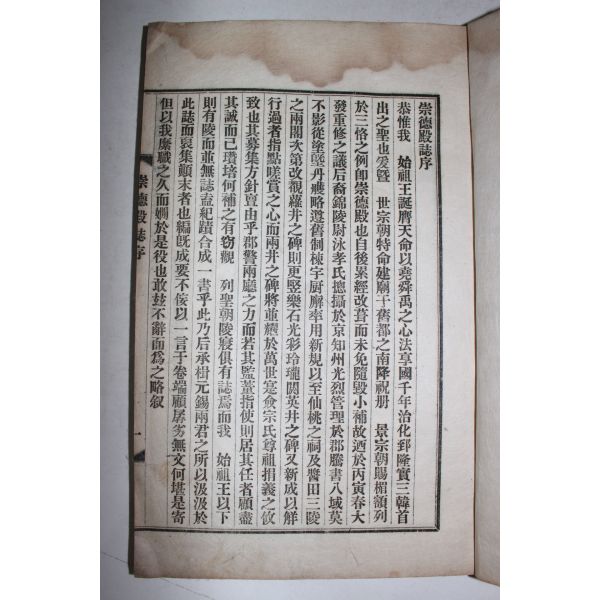 崇德殿誌序
恭惟我 始祖王誕膺天命以堯舜禹之心法享國千年治化郅隆實三韓首
出之聖也爰曁 世宗朝特命建廟于舊都之南降祝册 景宗朝賜楣額列
於三恪之例卽崇德殿也自後累經改葺而未免隨毁小補故迺於丙寅春大
發重修之議后裔錦陵尉泳孝氏摠攝於京知州光烈管理於郡騰書八域莫
不影從塗墍丹雘略遵舊制棟宇厨廨率用新規以至仙桃之祠及醬田三陵
之兩閣次第改觀蘿井之碑則更竪樂石光彩玲瓏閼英井之碑又新成以鮮
行過者指點嗟賞之心而兩井之碑將並耀於萬世寔僉宗氏尊祖捐義之攸
致也其募集方針亶由乎郡警兩廳之力而若其監董指使則居其任者顧盡
其誠而已瓚培何補之有窃觀 列聖朝陵寢俱有誌焉而我 始祖王以下
則有陵而並無誌盍紀蹟合成一書乎此乃后承楫元錫兩君之所以汲汲於
此誌而裒集顚末者也編旣成要不侫以一言于卷端顧孱劣無文何堪是寄
但以我縻職之久而嫺於是役也敢玆不辭而爲之略叙
崇德殿誌序
一